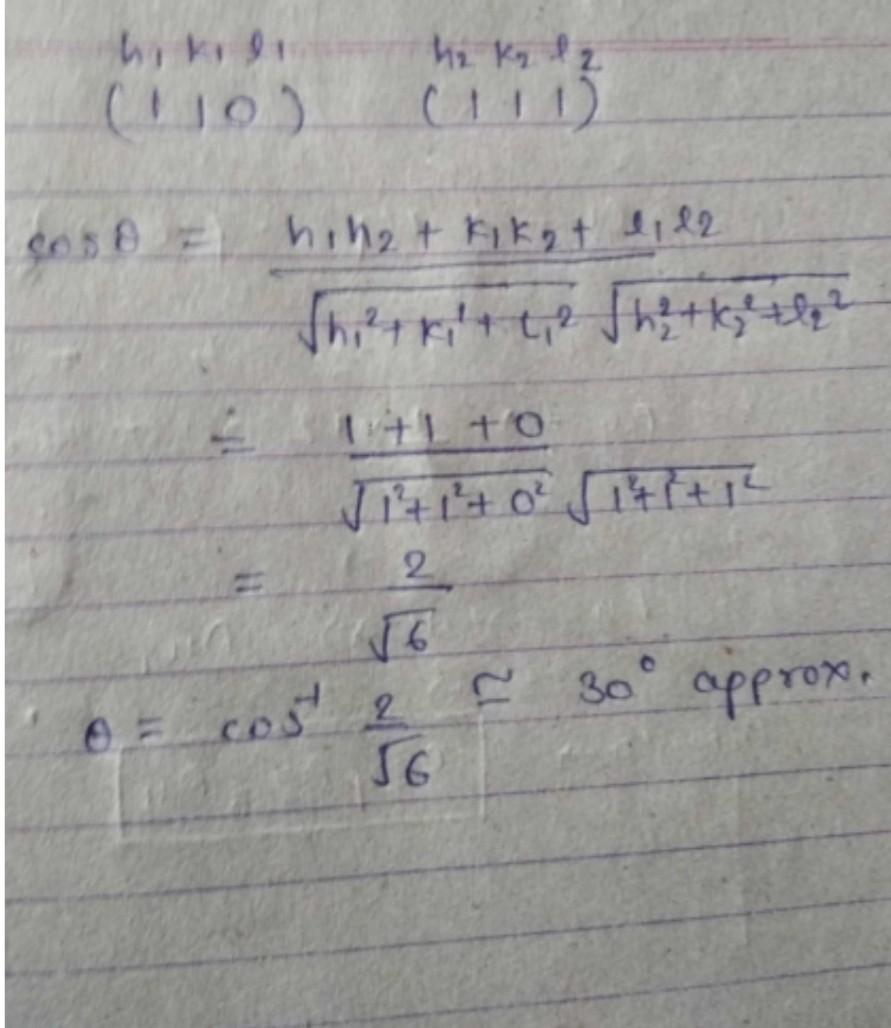 h₁ k₁ l₁ h₂ k₂ l₂
(1 1 0) (1 1 1)
cosθ = h₁h₂ + k₁k₂ + l₁l₂
√h₁²+k₁¹+l₁² √h₂²+k₂²+l₂²
= 1+1+0
√1²+1²+0² √1²+1²+1²
= 2
√6
θ = cos⁻¹ 2/√6 ≃ 30° approx.